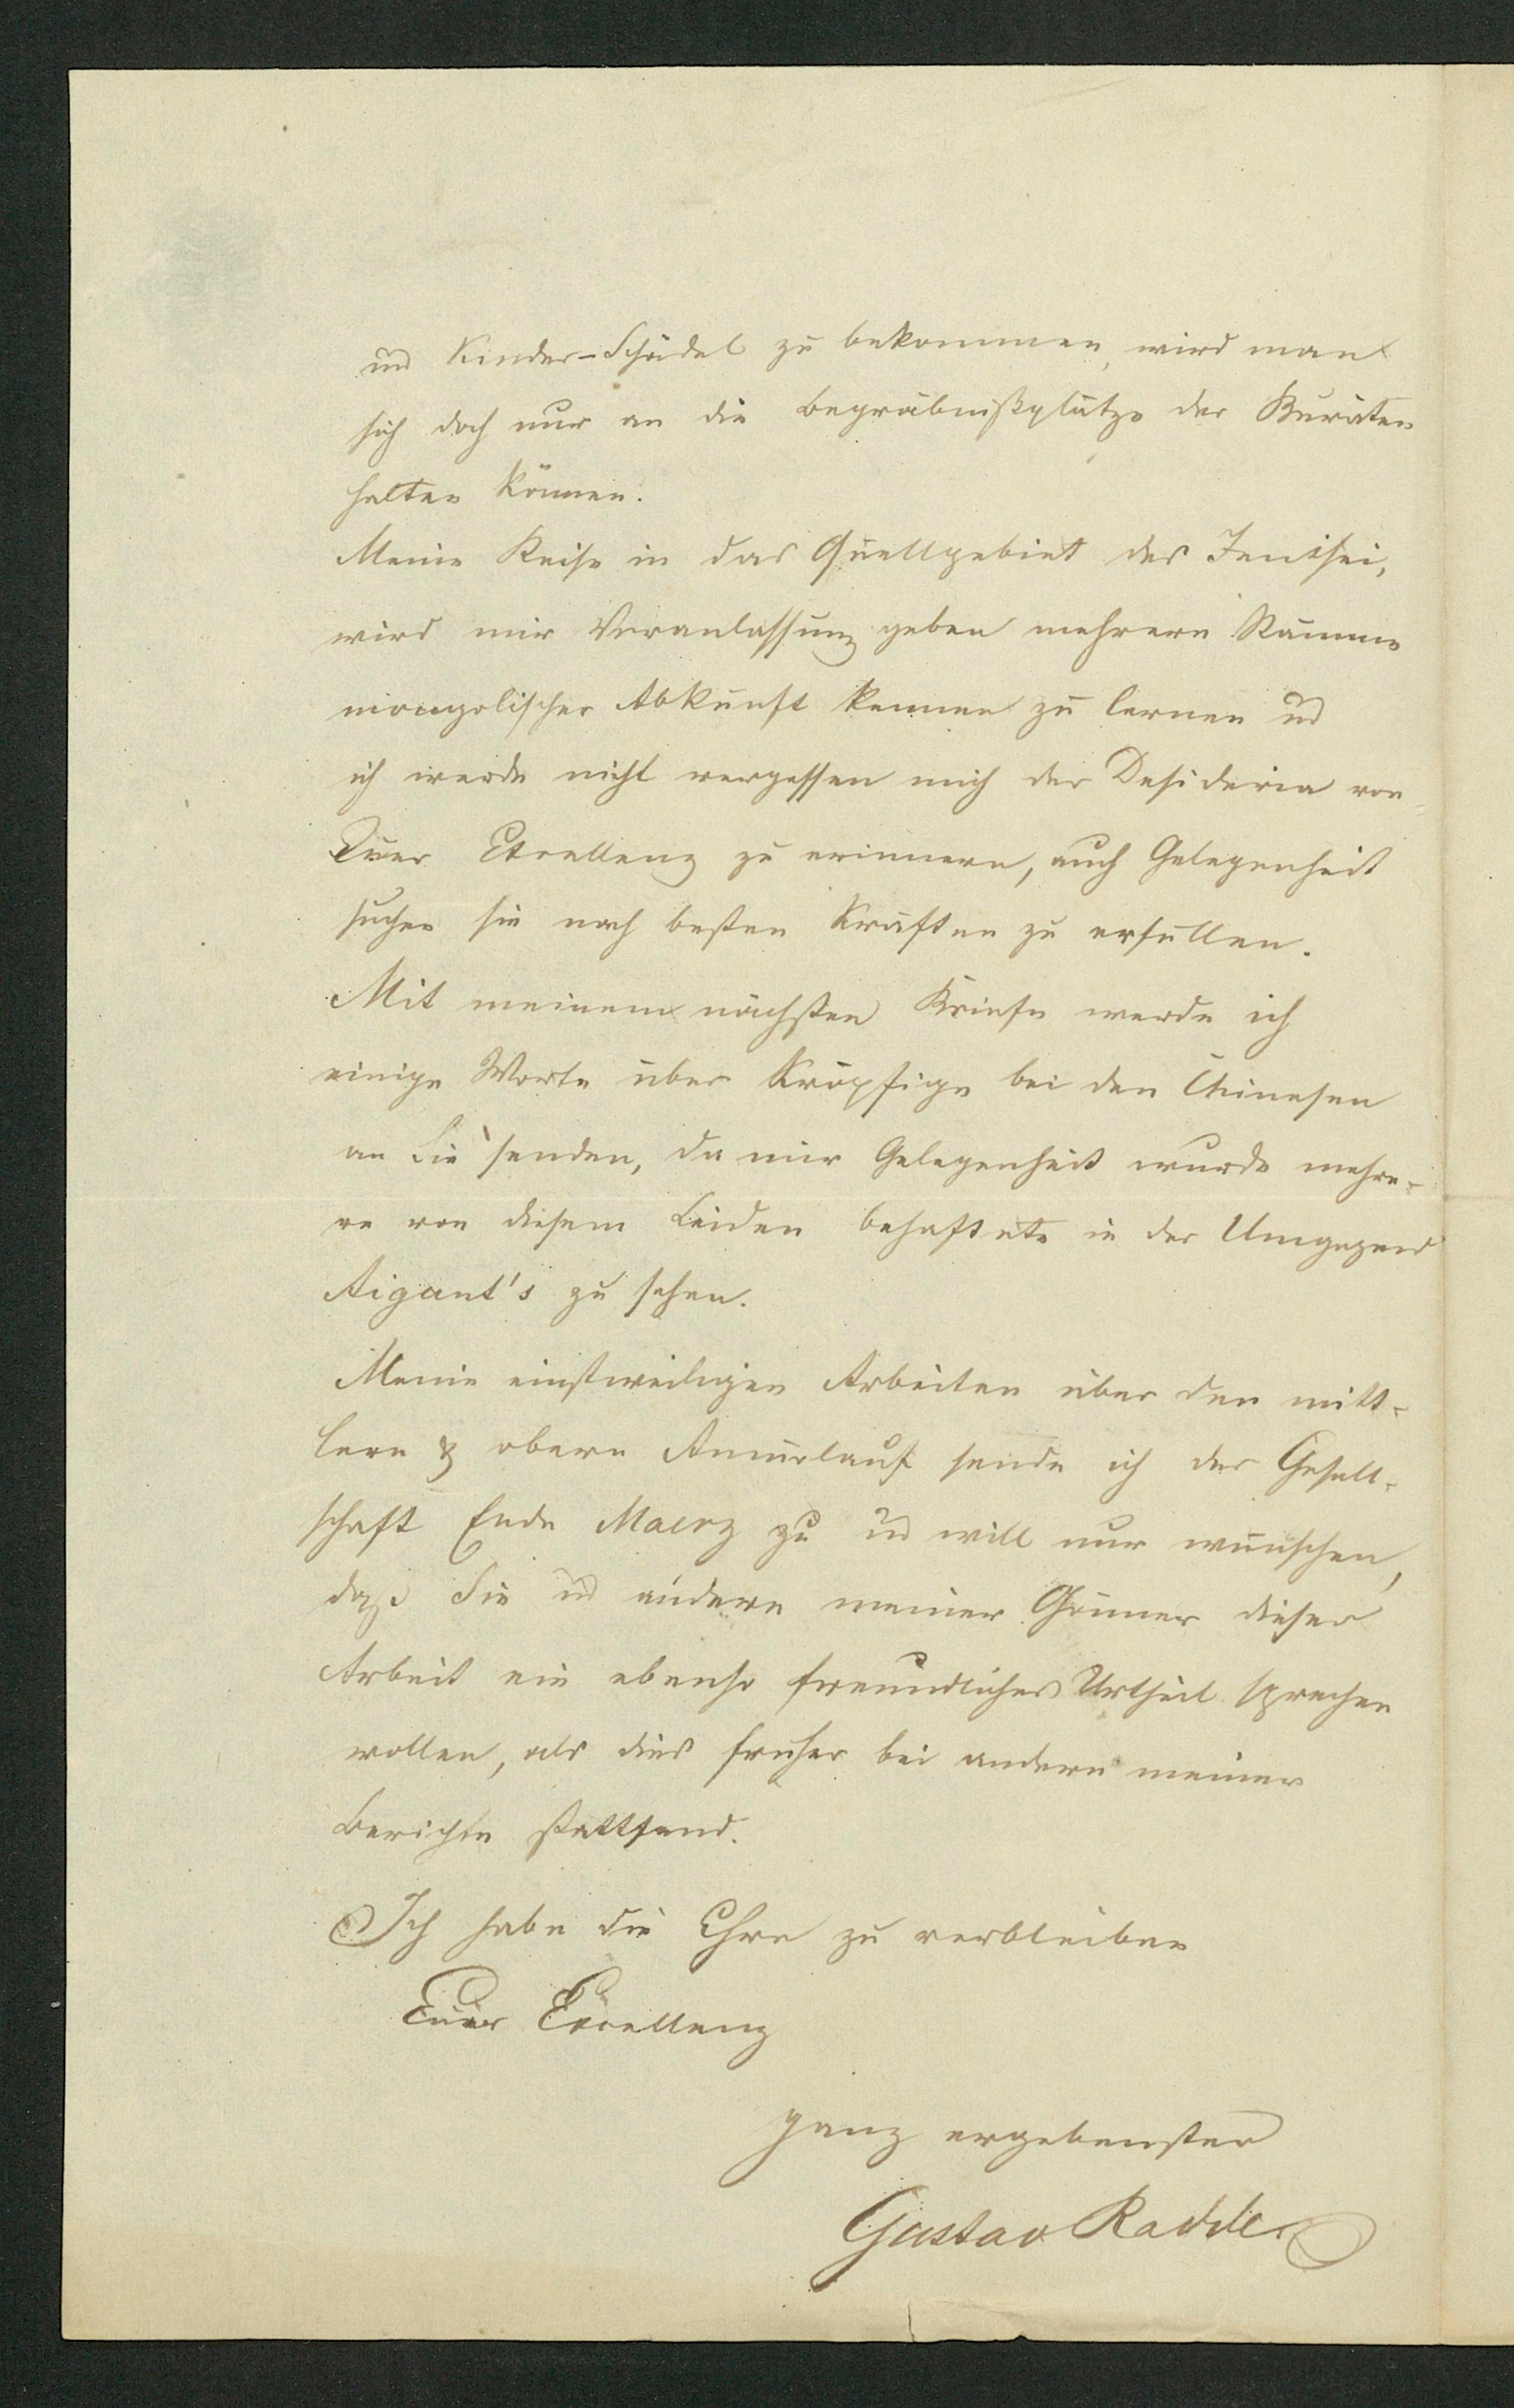 und Kinder-Schädel zu bekommen, wird man
sich doch nur an die Begräbnißplätze der Buräten
halten können.
Meine Reise in das Quellgebiet des Jenisei,
wird mir Veranlassung geben mehrere Stämme
mongolischer Abkunft kennen zu lernen und
ich werde nicht vergessen mich der Desideria von
Euer Excellenz zu erinnern, auch Gelegenheit
suchen sie nach besten Kräften zu erfüllen.
Mit meinem nächsten Briefe werde ich
einige Worte über Kröpfige bei den Chinesen
an Sie senden, da mir Gelegenheit wurde mehre-
re von diesem Leiden behaftete in der Umgegend
Aigunt's zu sehen.
Meine einstweiligen Arbeiten über den mitt-
lern & obern Amurlauf sende ich der Gesell-
schaft Ende Maerz zu und will nur wünschen,
daß Sie und andere meiner Gönner dieser
Arbeit ein ebenso freundliches Urtheil sprechen
wollen, als dies früher bei andern meiner
Berichte stattfand.
Ich habe die Ehre zu verbleiben
Euer Excellenz
ganz ergebenster
Gustav Radde